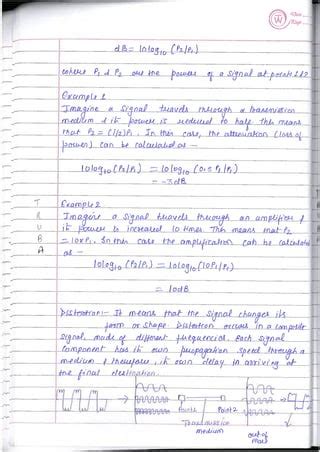 dB = 10log10 (P2/P1)
where P1 & P2 are the powers of a signal at points 1 & 2
Example 1
Imagine a signal travels through a transmission
medium & its power is reduced to half. this means
that P2 = (1/2)P1. In this case, the attenuation (loss of
power) can be calculated as -
10log10 (P2/P1) = 10log10 (0.5 P1/P1)
= -3dB
Example 2
Imagine a signal travels through an amplifier &
its power is increased 10 times. This means that P2
= 10xP1. In this case the amplification can be calculated
as -
10log10 (P2/P1) = 10log10 (10P1/P1)
= 10dB
T
R
U
B
A
Distortion:- It means that the signal changes its
form or shape. Distortion occurs in a composite
signal, made of different frequencies. Each signal
component has its own propagation speed through a
medium & therefore, its own delay in arriving at
the final destination.
Point1 Point2
Transmission
medium
out of